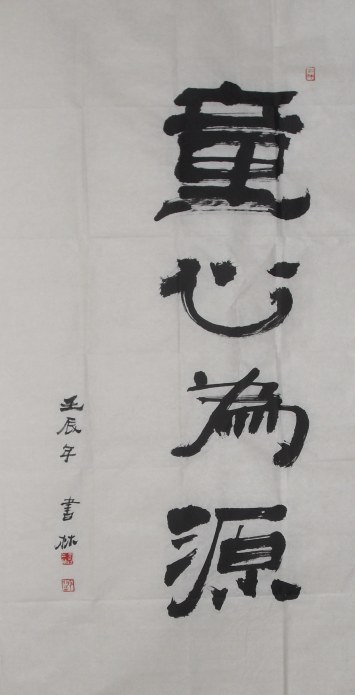 童心為源
壬辰年 書林